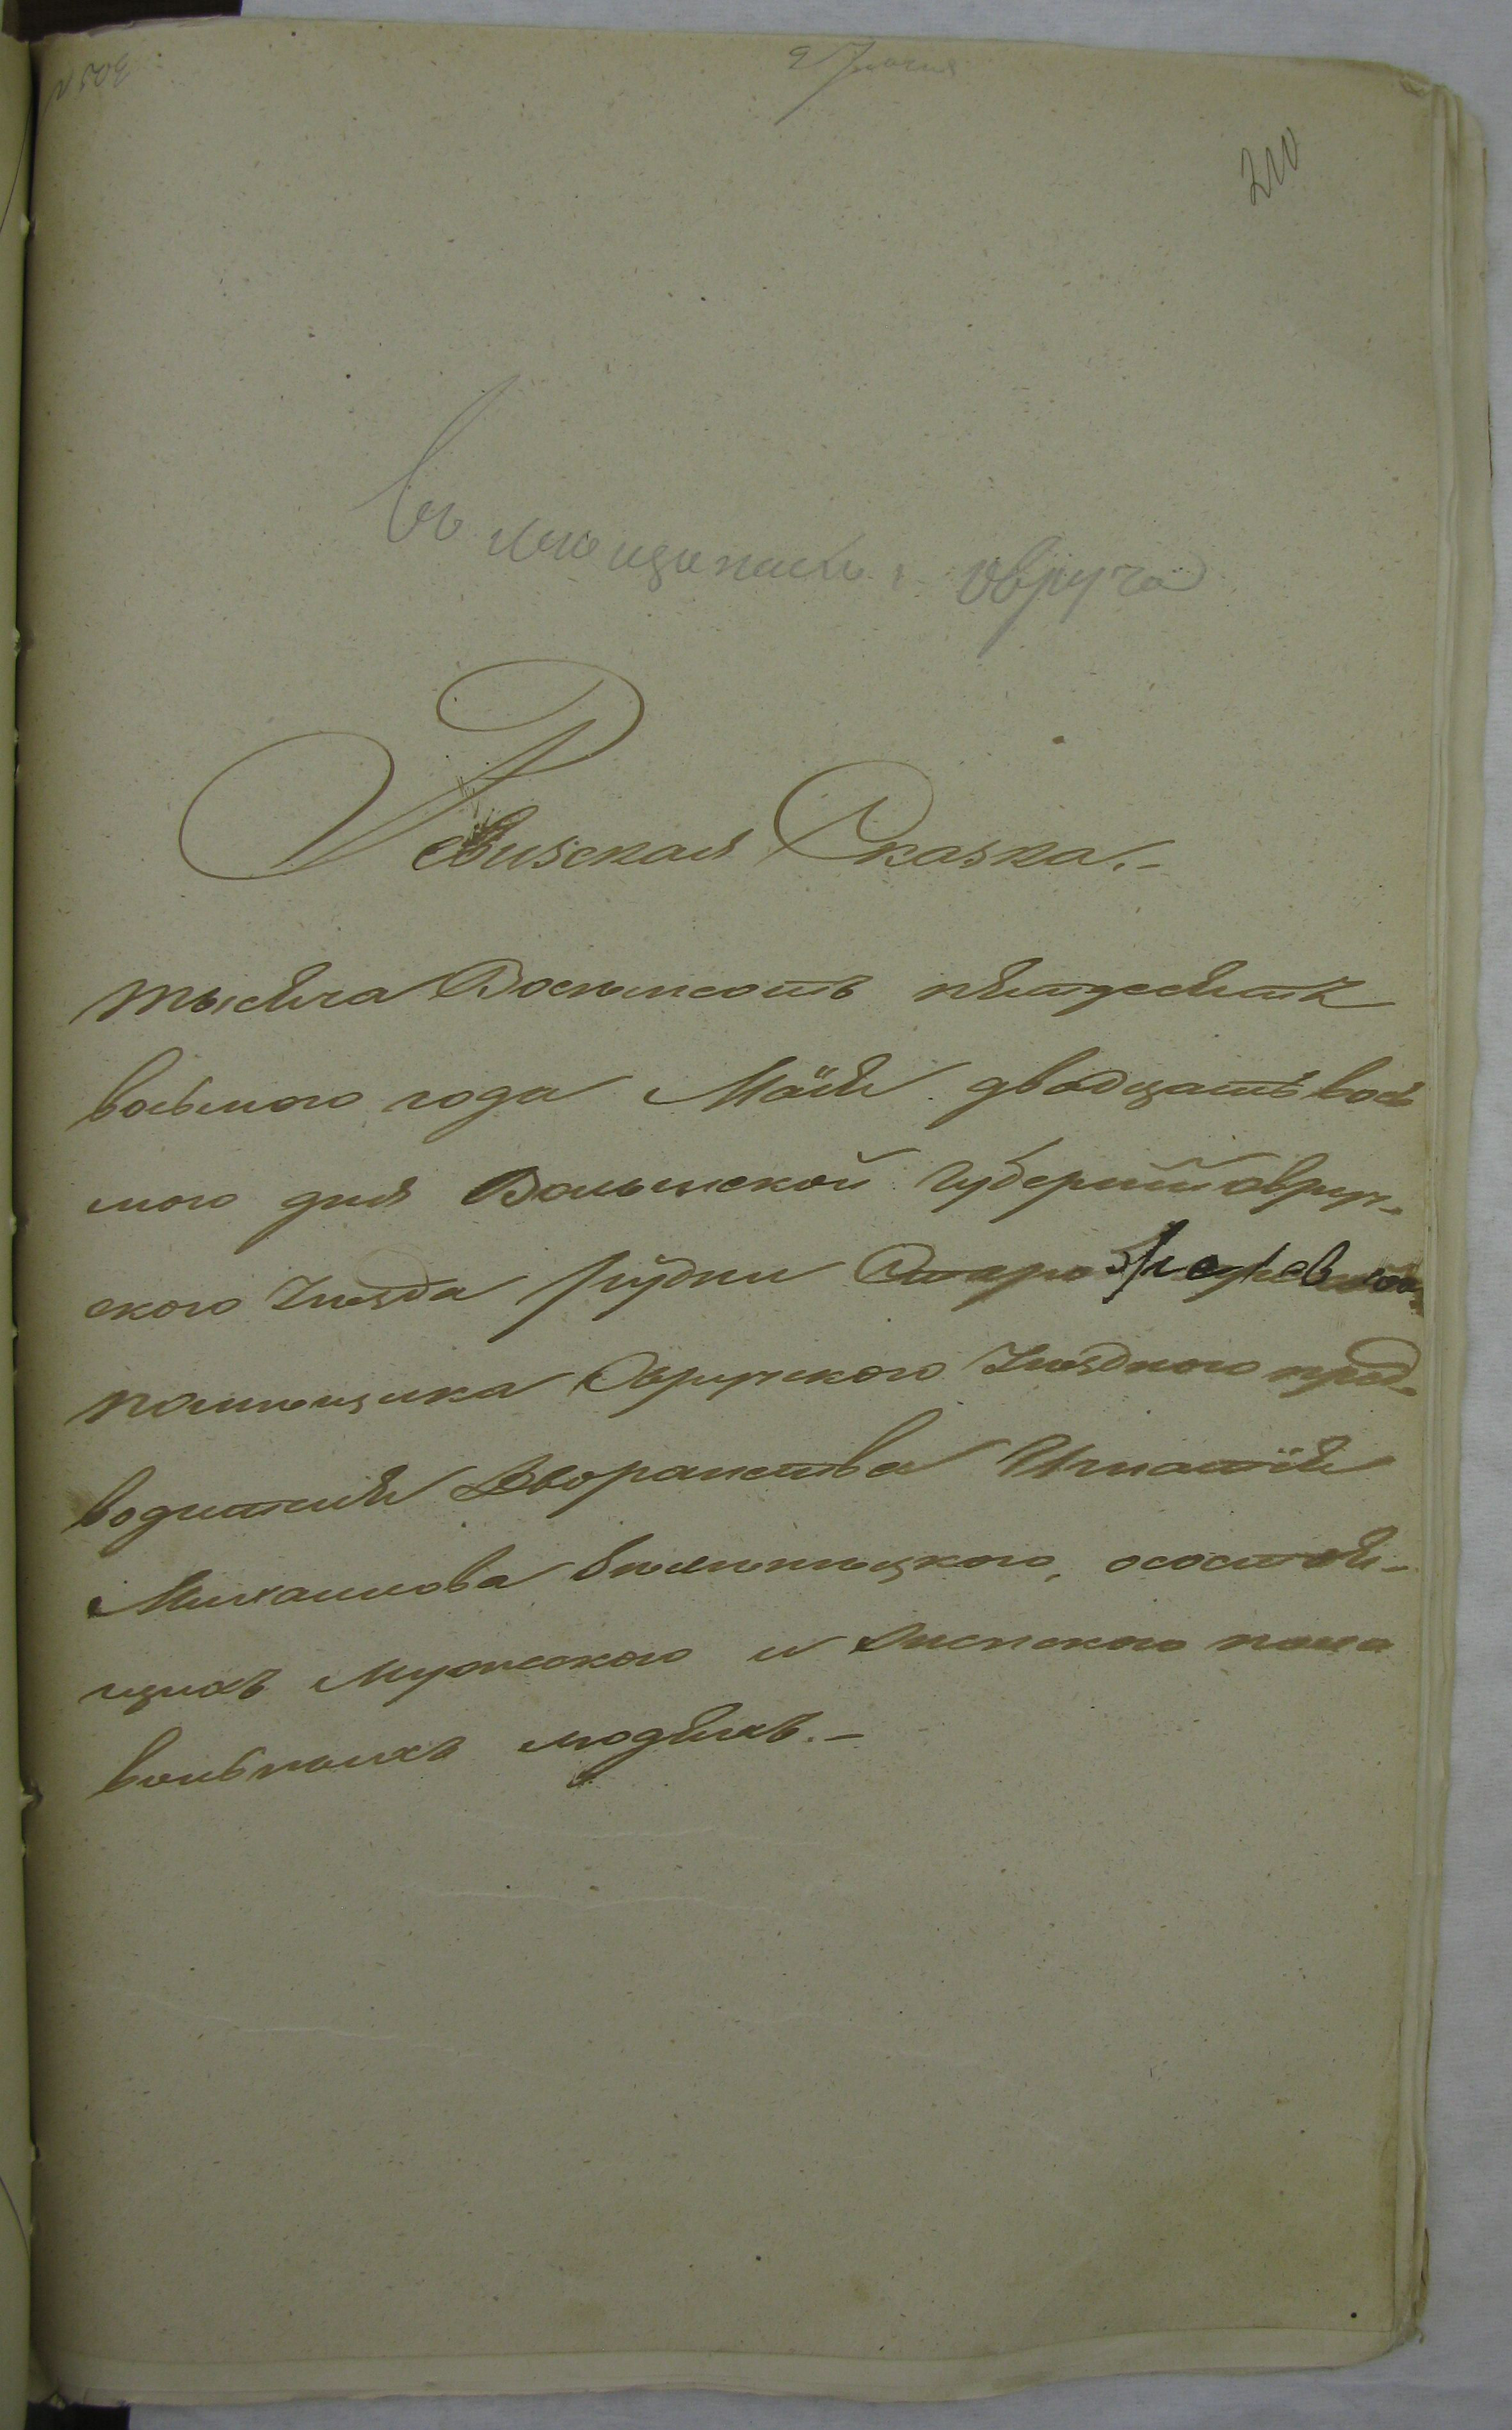 9 Іюня
210
въ мещанахъ г. Овруча
Ревизская Сказка.-
тысяча Восемьсотъ пятдесятъ
восьмого года Маія двадцать вось
мого дня Волынской Губерніи овруч-
ского Уезда Рудни
помещика Овручского Уезднаго пред-
водителя Дворанства Игнатія
Михаилова ососто̂я-
щихъ Мужеского и Женского пола
вольныхъ людяхъ.-